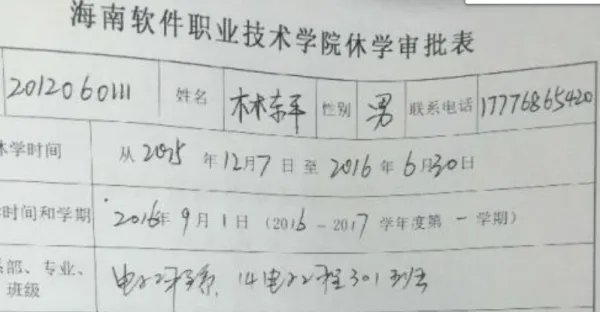 海南软件职业技术学院休学审批表
2012060111 姓名 林东平 性别 男 联系电话 17776865420
休学时间 从 2015 年 12月 7 日 至 2016 年 6月30日
时间和学期 2016年 9月 1日 (2016-2017学年度第一学期)
部、专业、 电工程系, 14电工程301班
班级